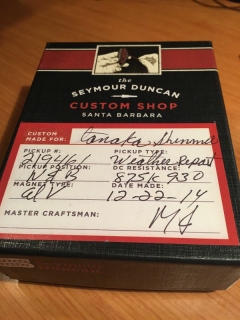 the
SEYMOUR DUNCAN
CUSTOM SHOP
SANTA BARBARA
CUSTOM MADE FOR: Tanaka
PICKUP #: PICKUP TYPE:
219461 Weather Report
PICKUP POSITION: DC RESISTANCE:
N & B 875K 930
MAGNET TYPE: DATE MADE:
12-22-14
MASTER CRAFTSMAN: MJ